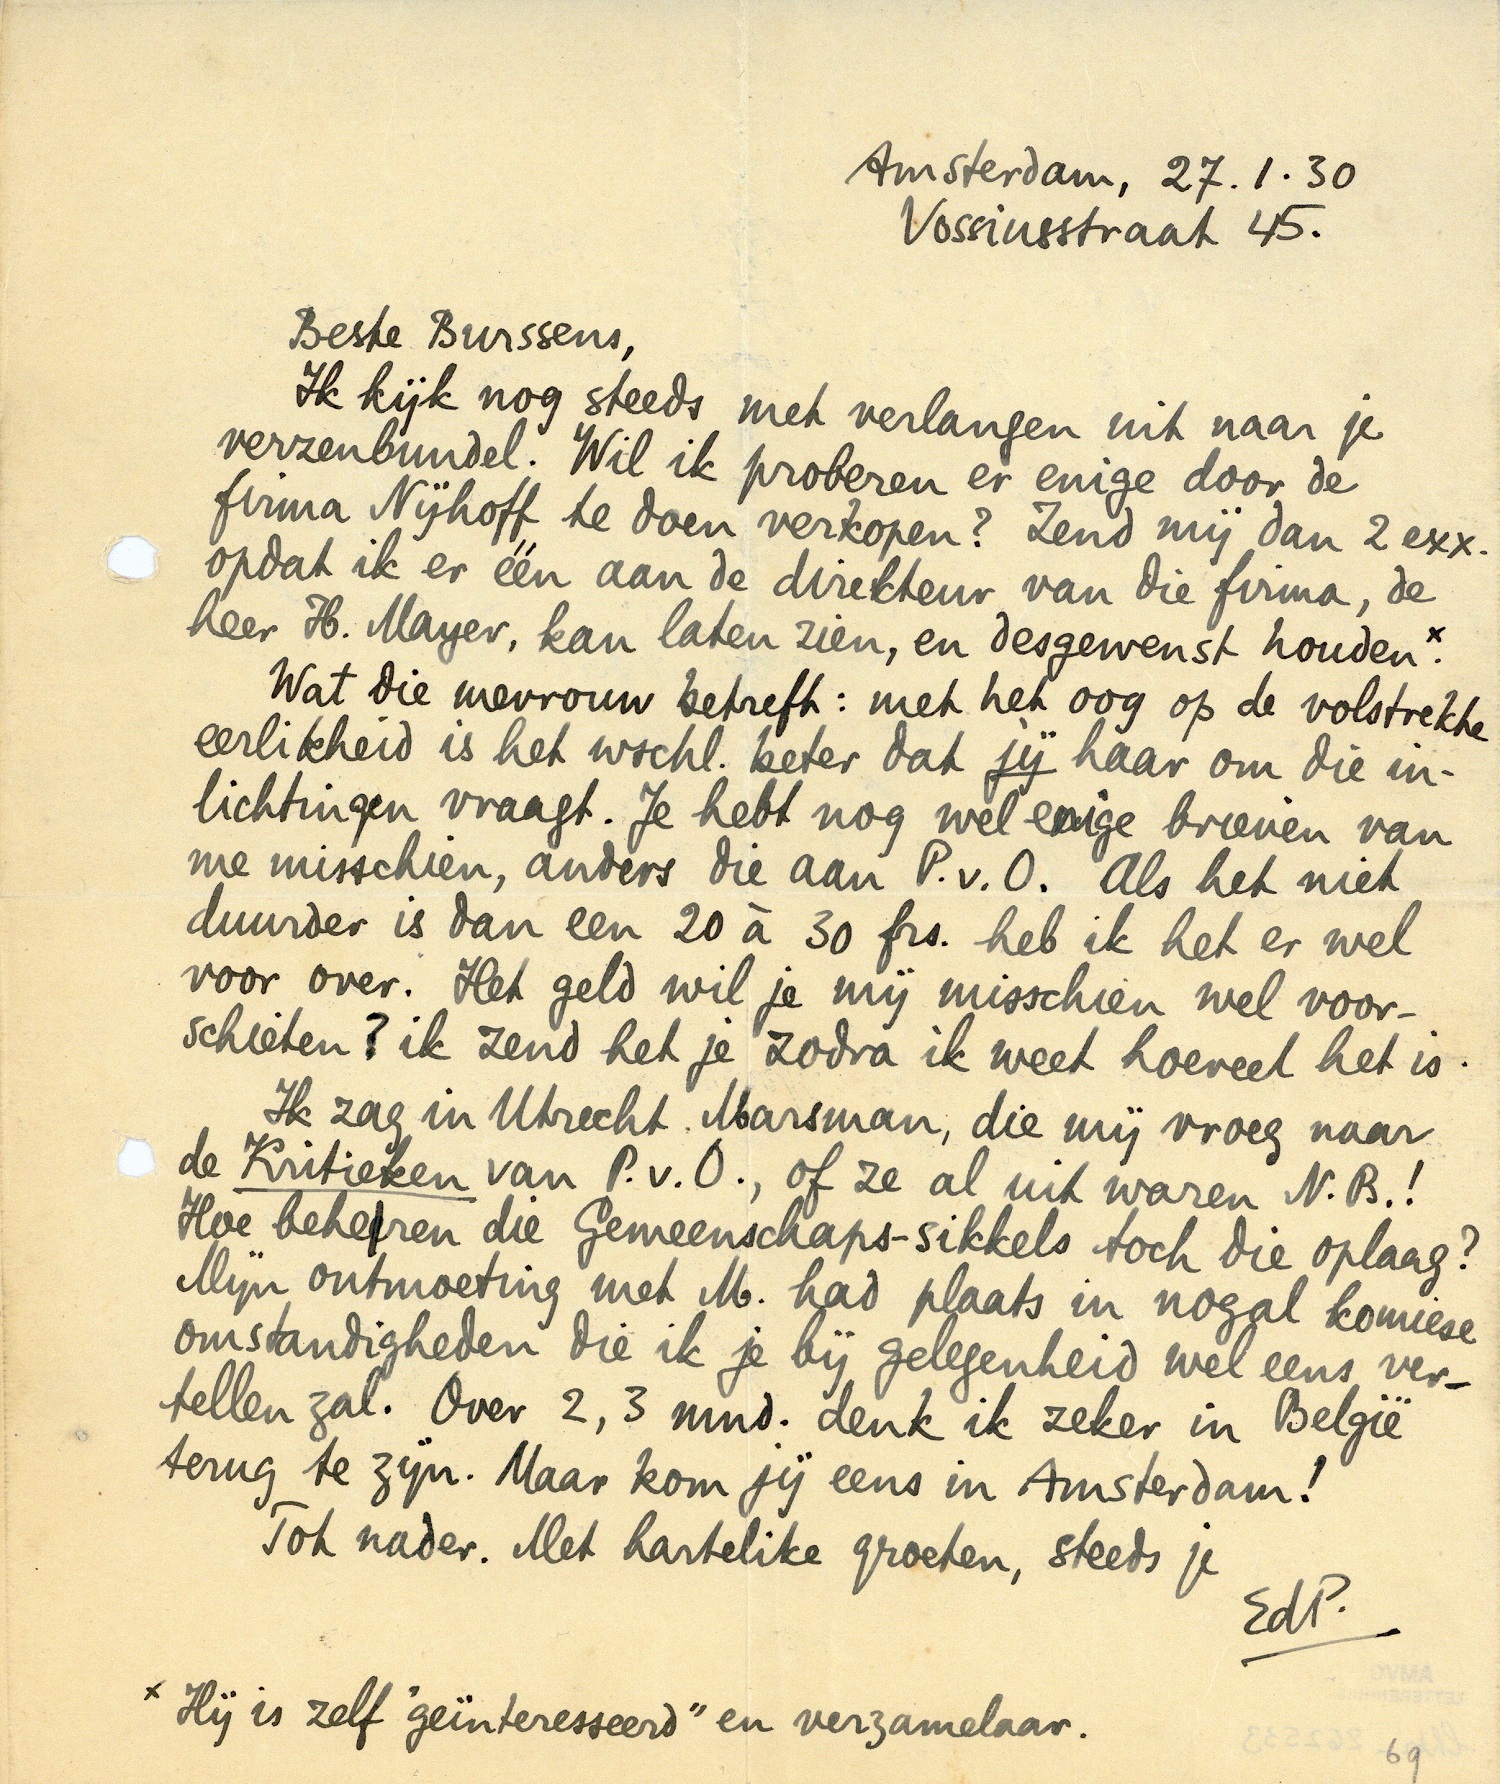 Amsterdam, 27.1.30
Vossiusstraat 45.
Beste Burssens,
Ik kijk nog steeds met verlangen uit naar je
verzenbundel. Wil ik proberen er enige door de
firma Nijhoff te doen verkopen? Zend mij dan 2 exx.
opdat ik er één aan de direkteur van die firma, de
heer H. Mayer, kan laten zien, en desgewenst houden.x
Wat die mevrouw betreft: met het oog op de volstrekte
eerlikheid is het wschl. beter dat jij haar om die in-
lichtingen vraagt. Je hebt nog wel enige brieven van
me misschien, anders die aan P.v.O. Als het niet
duurder is dan een 20 à 30 frs. heb ik het er wel
voor over. Het geld wil je mij misschien wel voor-
schieten? ik zend het je zodra ik weet hoeveel het is.
Ik zag in Utrecht Marsman, die mij vroeg naar
de Kritieken van P.v.O., of ze al uit waren N.B.!
Hoe beheren die Gemeenschaps-sikkels toch die oplaag?
Mijn ontmoeting met M. had plaats in nogal komiese
omstandigheden die ik je bij gelegenheid wel eens ver-
tellen zal. Over 2, 3 mnd. denk ik zeker in België
terug te zijn. Maar kom jij eens in Amsterdam!
Tot nader. Met hartelike groeten, steeds je
EdP.
x Hij is zelf "geïnteresseerd" en verzamelaar.
69